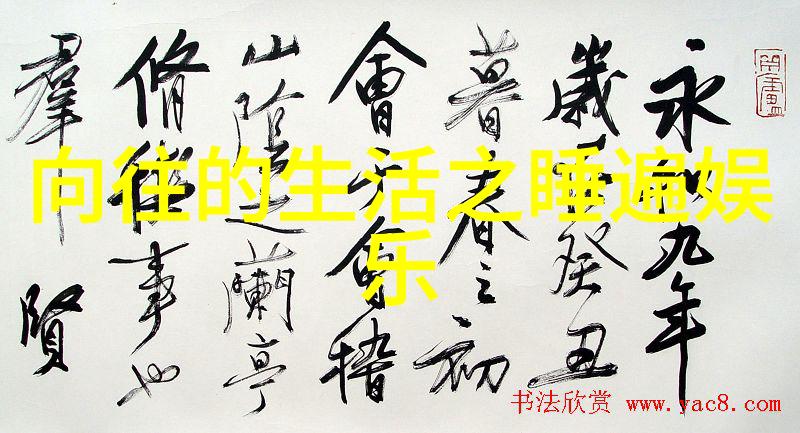 永和九年
歲在癸丑
暮春之初
會于會稽
山陰之蘭亭
脩稧事也
羣賢
向往的生活之睡遍娱
乐
书法欣赏 www.yac8.com